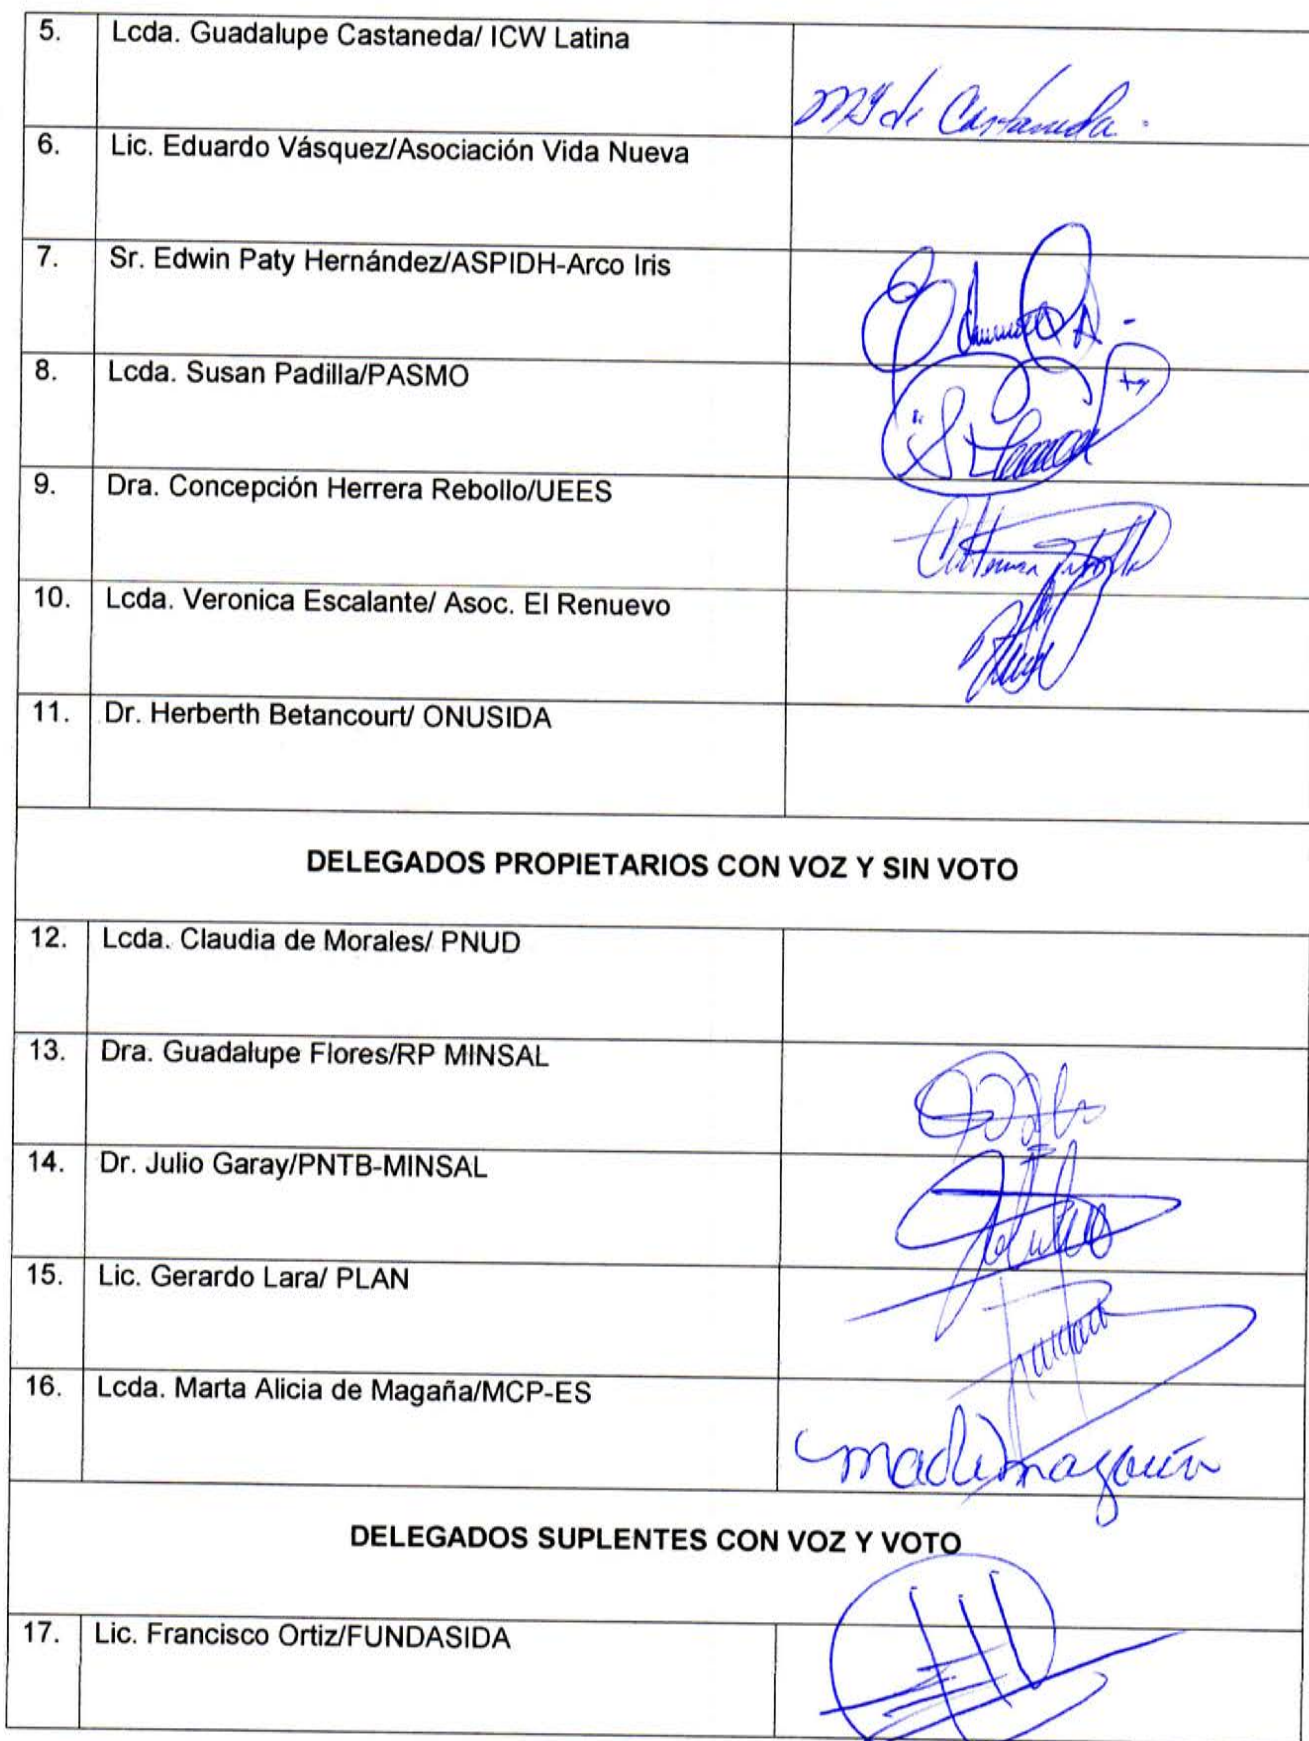 5. Lcda. Guadalupe Castaneda/ ICW Latina
de Castaneda.
6. Lic. Eduardo Vásquez/Asociación Vida Nueva
7. Sr. Edwin Paty Hernández/ASPIDH-Arco Iris
8. Lcda. Susan Padilla/PASMO
9. Dra. Concepción Herrera Rebollo/UEES
10. Lcda. Veronica Escalante/ Asoc. El Renuevo
11. Dr. Herberth Betancourt/ ONUSIDA
DELEGADOS PROPIETARIOS CON VOZ Y SIN VOTO
12. Lcda. Claudia de Morales/ PNUD
13. Dra. Guadalupe Flores/RP MINSAL
14. Dr. Julio Garay/PNTB-MINSAL
15. Lic. Gerardo Lara/ PLAN
16. Lcda. Marta Alicia de Magaña/MCP-ES
DELEGADOS SUPLENTES CON VOZ Y VOTO
17. Lic. Francisco Ortiz/FUNDASIDA